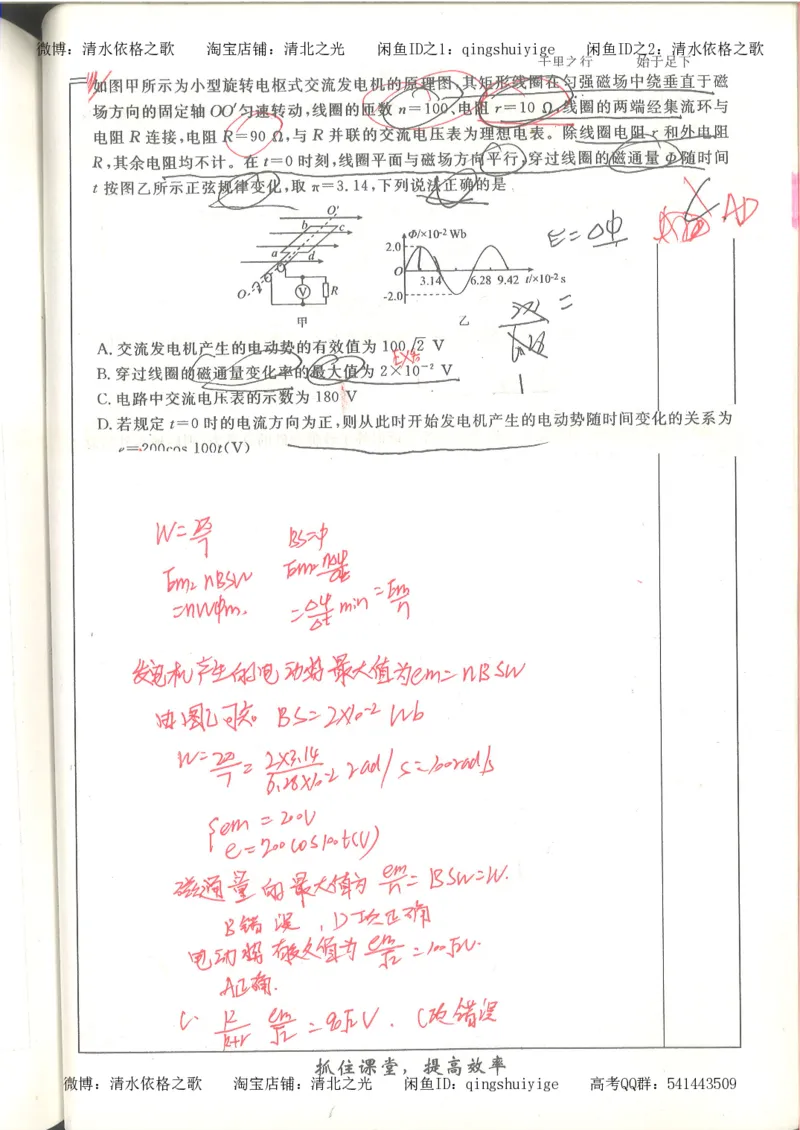 微博：清水依格之歌 淘宝店铺：清北之光 闲鱼ID之1：qingshuiyige 闲鱼ID之2：清水依格之歌
千里之行 始于足下
如图甲所示为小型旋转电枢式交流发电机的原理图,其矩形线圈在匀强磁场中绕垂直于磁
场方向的固定轴OO′匀速转动,线圈的匝数 n=100、电阻 r=10 Ω,线圈的两端经集流环与
电阻 R 连接,电阻 R=90 Ω,与 R 并联的交流电压表为理想电表。除线圈电阻 r 和外电阻
R,其余电阻均不计。在 t=0 时刻,线圈平面与磁场方向平行,穿过线圈的磁通量 Φ 随时间
t 按图乙所示正弦规律变化,取 π=3.14,下列说法正确的是
AD
E=ΔΦ
O′
b c
a d
O
V R
甲
Φ/×10⁻² Wb
2.0
O 3.14 6.28 9.42 t/×10⁻² s
-2.0
乙
A. 交流发电机产生的电动势的有效值为 100√2 V
B. 穿过线圈的磁通量变化率的最大值为 2×10⁻² V
C. 电路中交流电压表的示数为 180 V
D. 若规定 t=0 时的电流方向为正,则从此时开始发电机产生的电动势随时间变化的关系为
e=200cos 100t(V)
BS=Φ
Em=nBSW
=nWΦm.
发电机产生的电动势最大值为em=nBSW
由图乙可知 BS=2×10⁻² Wb
W=2π/T=2×3.14/6.28×10⁻² rad/s=100rad/s
em=200V
e=200cos100t(V)
磁通量的最大值为em/n=BSW=W.
B错误，D项正确
电动势有效值为em/√2=100√2V.
A正确.
C. R/R+r em/√2=90√2V. C项错误
抓住课堂，提高效率
微博：清水依格之歌 淘宝店铺：清北之光 闲鱼ID：qingshuiyige 高考QQ群：541443509